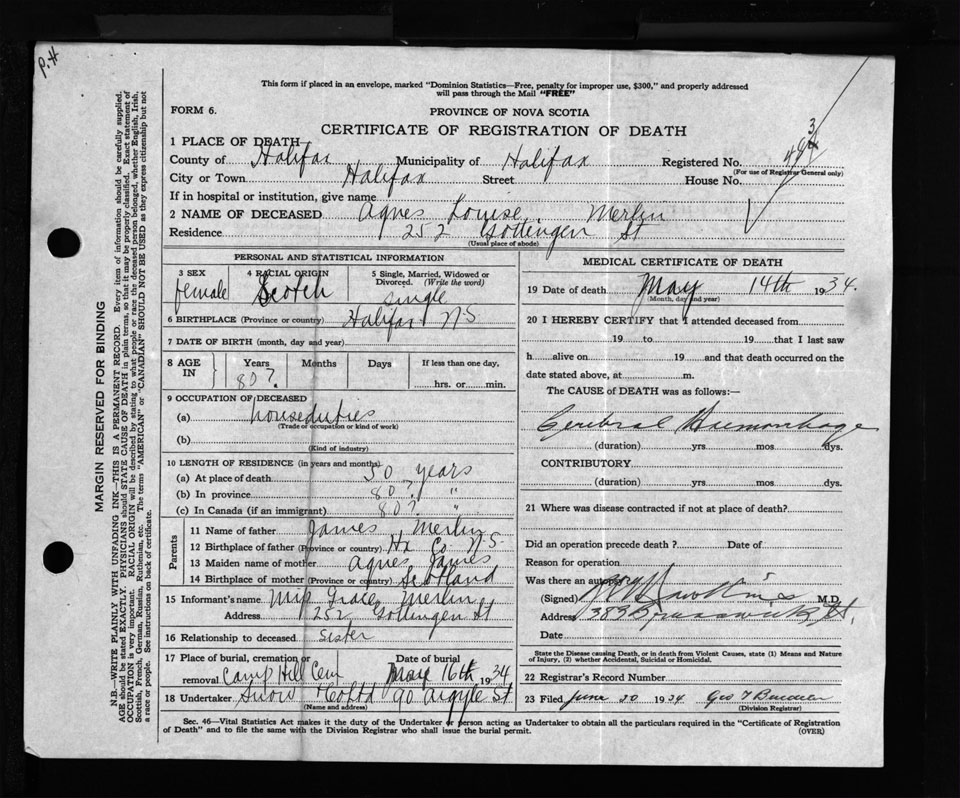 P.H
This form if placed in an envelope, marked "Dominion Statistics—Free, penalty for improper use, $300," and properly addressed
will pass through the Mail "FREE"
FORM 6.
PROVINCE OF NOVA SCOTIA
CERTIFICATE OF REGISTRATION OF DEATH
1 PLACE OF DEATH
County of Halifax Municipality of Halifax Registered No.
(For use of Registrar General only)
City or Town Halifax Street House No.
If in hospital or institution, give name
2 NAME OF DECEASED Agnes Louise Merlin
Residence 252 Gottengen St
(Usual place of abode)
PERSONAL AND STATISTICAL INFORMATION
3 SEX female
4 RACIAL ORIGIN Scotch
5 Single, Married, Widowed or Divorced. (Write the word) single
6 BIRTHPLACE (Province or country) Halifax N-S
7 DATE OF BIRTH (month, day and year)
8 AGE IN Years Months Days If less than one day,
80?. hrs. or min.
9 OCCUPATION OF DECEASED
(a) houseduties
(Trade or occupation or kind of work)
(b)
(Kind of industry)
10 LENGTH OF RESIDENCE (in years and months)
(a) At place of death 50 years
(b) In province 80? "
(c) In Canada (if an immigrant) 80? "
Parents
11 Name of father James Merlin
12 Birthplace of father (Province or country) Hx Co N-S
13 Maiden name of mother Agnes James
14 Birthplace of mother (Province or country) Scotland
15 Informant's name Miss Grace Merlin
Address 252 Gottengen St
16 Relationship to deceased sister
17 Place of burial, cremation or removal Camp Hill Cem Date of burial May 16th 1934
18 Undertaker Snows Co Ltd 90 Argyle St
(Name and address)
MEDICAL CERTIFICATE OF DEATH
19 Date of death May 14th 1934.
(Month, day and year)
20 I HEREBY CERTIFY that I attended deceased from
19 to 19 that I last saw
h alive on 19 and that death occurred on the
date stated above, at m.
The CAUSE OF DEATH was as follows:—
Cerebral Haemorrhage
(duration) yrs mos dys.
CONTRIBUTORY
(duration) yrs. mos. dys.
21 Where was disease contracted if not at place of death?
Did an operation precede death? Date of
Reason for operation
Was there an autopsy
(Signed) Hawkins M.D.
Address 383 Brunswick St.
Date
State the Disease causing Death, or in death from Violent Causes, state (1) Means and Nature
of Injury, (2) whether Accidental, Suicidal or Homicidal.
22 Registrar's Record Number
23 Filed June 30 1934 Geo
(Division Registrar)
Sec. 46—Vital Statistics Act makes it the duty of the Undertaker or person acting as Undertaker to obtain all the particulars required in the "Certificate of Registration
of Death" and to file the same with the Division Registrar who shall issue the burial permit.
(OVER)
MARGIN RESERVED FOR BINDING
N.B.—WRITE PLAINLY WITH UNFADING INK—THIS IS A PERMANENT RECORD. Every item of information should be carefully supplied.
AGE should be stated EXACTLY. PHYSICIANS should STATE CAUSE OF DEATH in plain terms, so that it may be properly classified. Exact statement of
OCCUPATION is very important. RACIAL ORIGIN will be described by stating to what people or race the deceased person belonged, whether English, Irish,
Scottish, French, German, Russian, Ruthenian, etc. The terms "AMERICAN" or "CANADIAN" SHOULD NOT BE USED as they express citizenship but not
a race or people. See instructions on back of certificate.